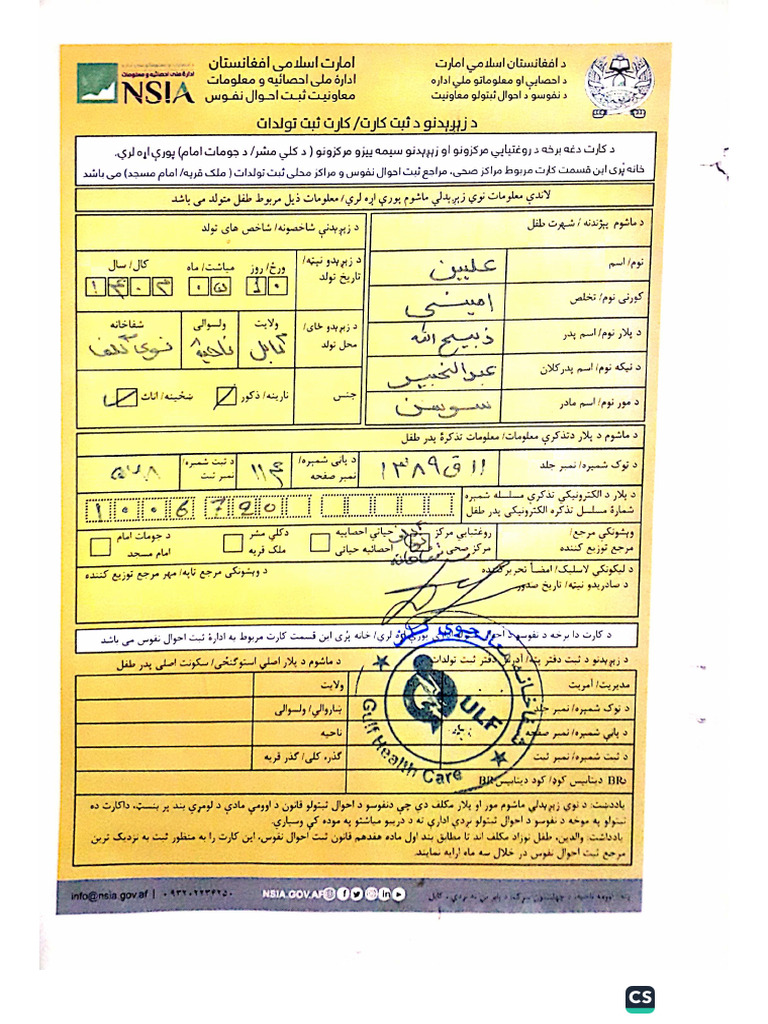 د افغانستان اسلامي امارت
د احصایې او معلوماتو ملي اداره
د نفوسو د احوال ثبتولو معاونیت
امارت اسلامی افغانستان
ادارهٔ ملی احصائیه و معلومات
معاونیت ثبت احوال نفوس
ادارهٔ ملی احصائیه و معلومات
NSIA
د زېږېدنو د ثبت کارت/ کارت ثبت تولدات
د کارت دغه برخه د روغتیایي مرکزونو او زېږېدنو سیمه ییزو مرکزونو ( د کلي مشر/ د جومات امام) پورې اړه لري.
خانه پُری این قسمت کارت مربوط مراکز صحی، مراجع ثبت احوال نفوس و مراکز محلی ثبت تولدات ( ملک قریه/ امام مسجد) می باشد
لاندې معلومات نوي زېږېدلي ماشوم پورې اړه لري/ معلومات ذیل مربوط طفل متولد می باشد
د ماشوم پېژندنه / شهرت طفل
د زېږېدنې شاخصونه/ شاخص های تولد
نوم/ اسم علیین
کورنی نوم/ تخلص امینی
د پلار نوم/ اسم پدر ذبیح الله
د نیکه نوم/ اسم پدرکلان عبدالخبیر
د مور نوم/ اسم مادر سوسن
د زېږېدو نېټه/ تاریخ تولد
ورځ/ روز میاشت/ ماه کال/ سال
د زېږېدو ځای/ محل تولد
ولایت ولسوالی شفاخانه
کابل ناحیه
جنس نارینه/ ذکور ښځینه/ اناث
د ماشوم د پلار دتذکرې معلومات/ معلومات تذکرهٔ پدر طفل
د ټوک شمېره/ نمبر جلد ۱۱ ق ۱۳۸۹
د پاڼې شمېره/ نمبر صفحه
د ثبت شمېره/ نمبر ثبت
د پلار د الکترونیکي تذکرې مسلسله شمېره
شمارهٔ مسلسل تذکره الکترونیکی پدر طفل
1006720
وېشونکی مرجع/ مرجع توزیع کننده
روغتیایي مرکز مرکز صحی
د حیاتي احصاییه احصائیه حیاتی
دکلي مشر ملک قریه
د جومات امام امام مسجد
د لیکونکي لاسلیک/ امضأ تحریر کننده
د صادرېدو نېټه/ تاریخ صدور
د وېشونکي مرجع ټاپه/ مهر مرجع توزیع کننده
د کارت دا برخه د نفوسو د احوال پورې اړه لري/ خانه پُری این قسمت کارت مربوط به ادارهٔ ثبت احوال نفوس می باشد
د زېږېدنو د ثبت دفتر پته/ آدرس دفتر ثبت تولدات
د ماشوم د پلار اصلي استوګنځی/ سکونت اصلی پدر طفل
مدیریت/ آمریت
ولایت
د ټوک شمېره/ نمبر جلد
ښاروالي/ ولسوالی
د پاڼې شمېره/ نمبر صفحه
ناحیه
د ثبت شمېره/ نمبر ثبت
گذره کلی/ گذر قریه
دBR دیتابیس کوډ/ کود دیتابیسBR
GULF
Gulf Health Care
یادداښت: د نوي زېږېدلي ماشوم مور او پلار مکلف دي چې دنفوسو د احوال ثبتولو قانون د اوومې مادې د لومړي بند پر بنسټ، داکارت ده
ثبتولو په موخه د نفوسو د احوال ثبتولو نږدې ادارې ته د دریيو میاشتو په موده کې وسپاري.
یادداشت: والدین، طفل نوزاد مکلف اند تا مطابق بند اول ماده هفدهم قانون ثبت احوال نفوس، این کارت را به منظور ثبت به نزدیک ترین
مرجع ثبت احوال نفوس در خلال سه ماه ارایه نمایند.
info@nsia.gov.af | ۰۹۳۲۰۲۲۳۶۲۵۰
NSIA.GOV.AF
CS